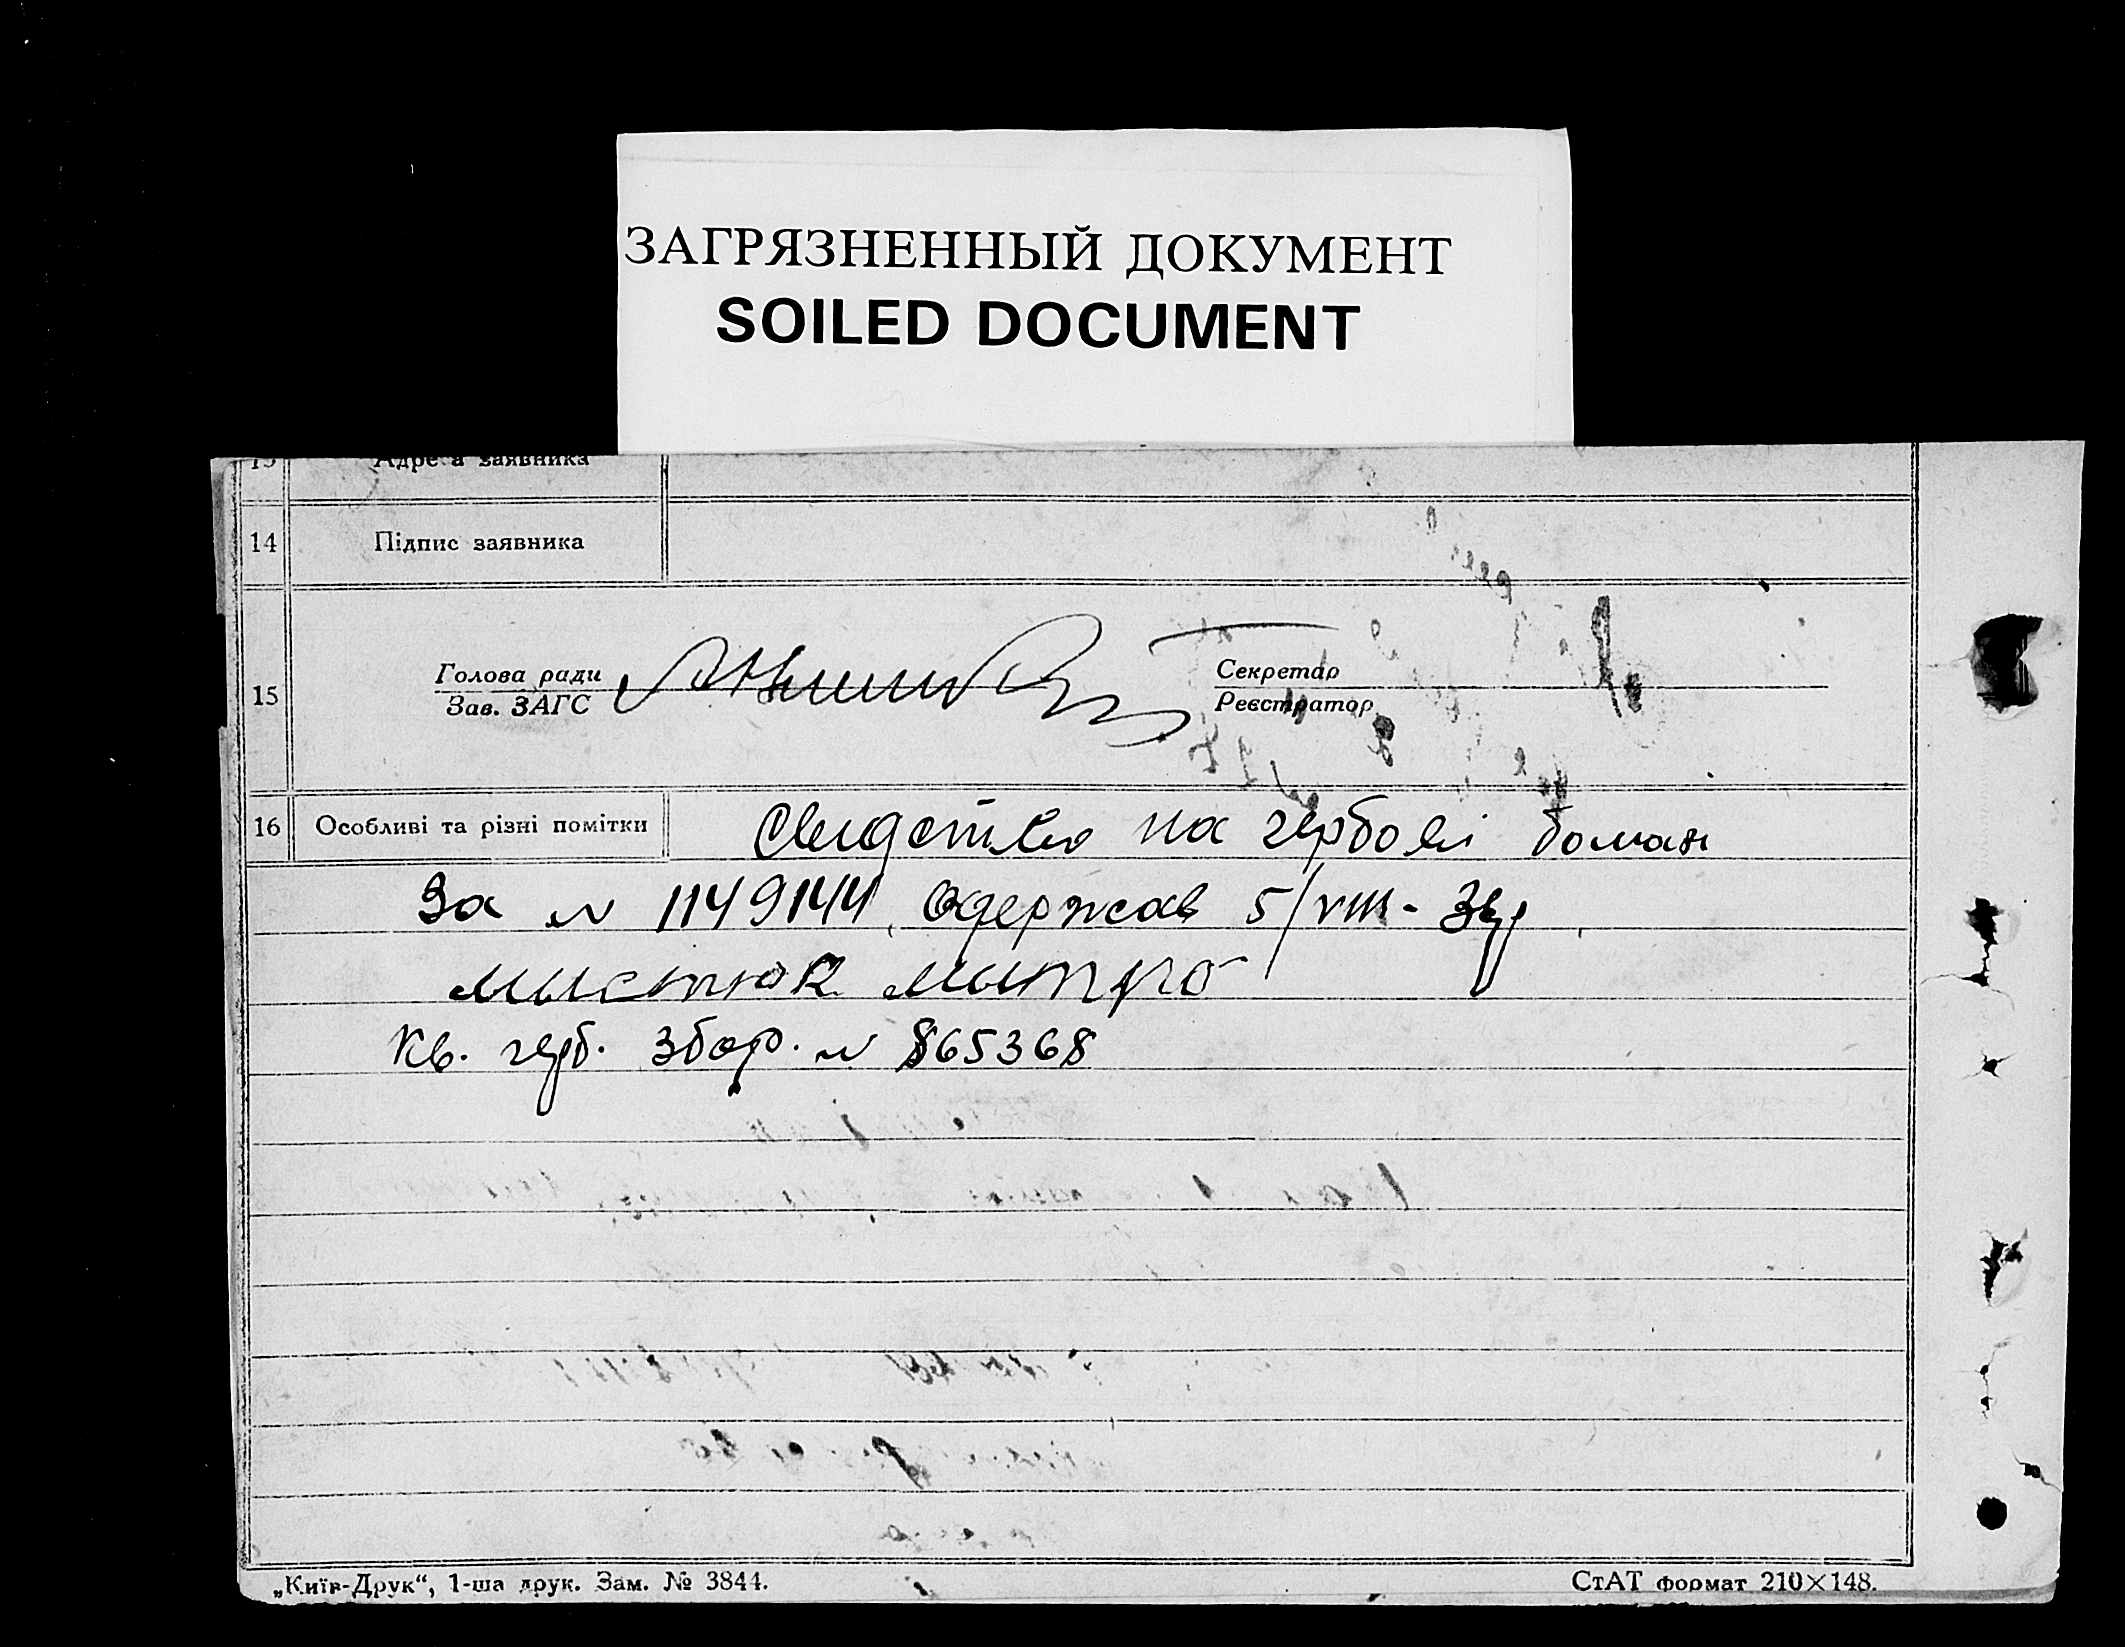 ЗАГРЯЗНЕННЫЙ ДОКУМЕНТ
SOILED DOCUMENT
13 Адреса заявника
14 Підпис заявника
15 Голова ради Секретар
Зав. ЗАГС Реєстратор
16 Особливі та різні помітки Свидство на гербові
За № 1149144, одержав 5/VIII-
Мистюк Митро
Кв. герб. збор. № 865368
„Київ-Друк“, 1-ша друк. Зам. № 3844. СтАТ формат 210×148.